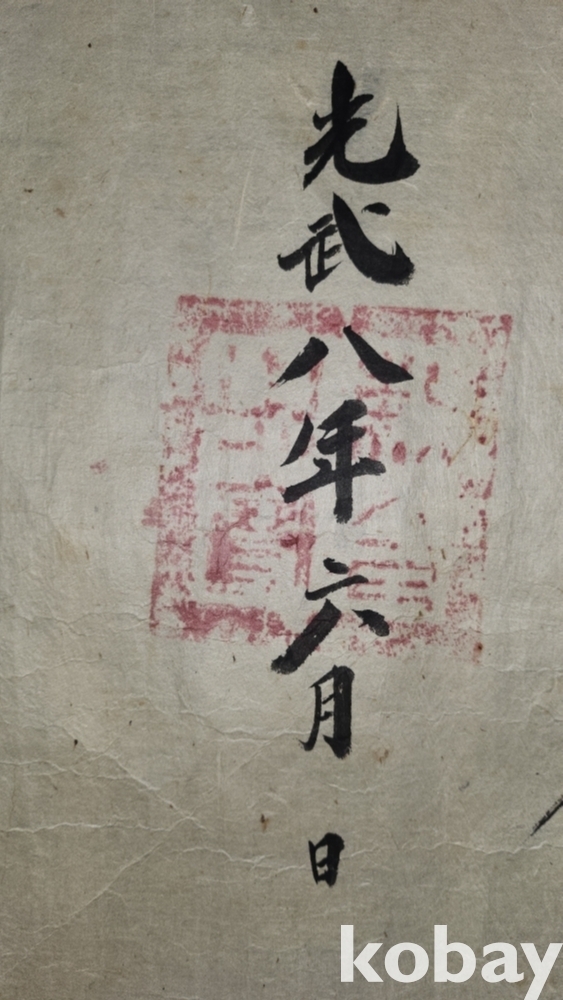 光武八年六月 日
kobay